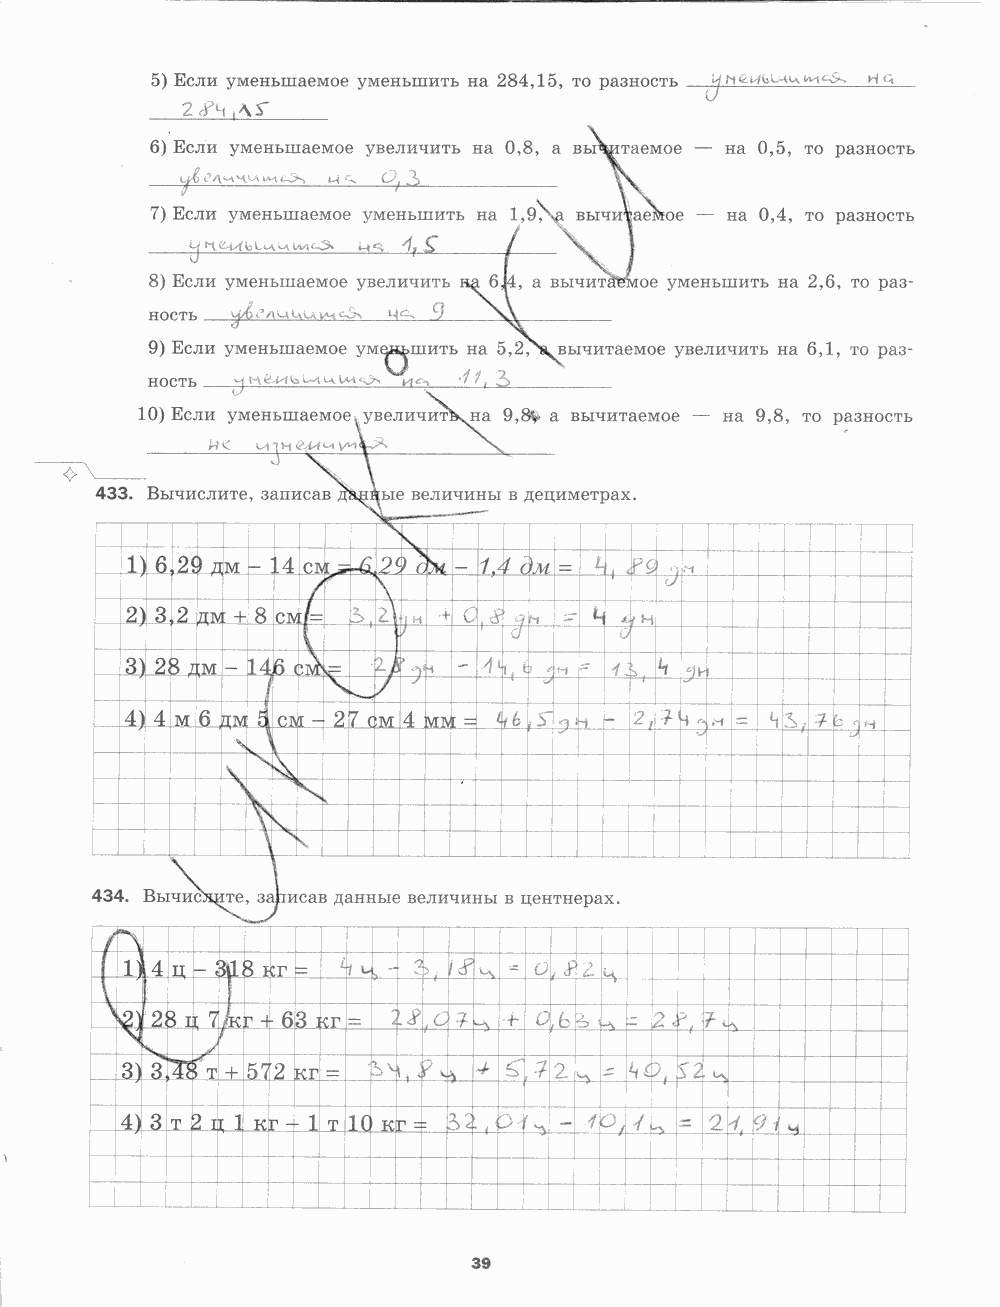 5) Если уменьшаемое уменьшить на 284,15, то разность уменьшится на
284,15
6) Если уменьшаемое увеличить на 0,8, а вычитаемое — на 0,5, то разность
увеличится на 0,3
7) Если уменьшаемое уменьшить на 1,9, а вычитаемое — на 0,4, то разность
уменьшится на 1,5
8) Если уменьшаемое увеличить на 6,4, а вычитаемое уменьшить на 2,6, то раз-
ность увеличится на 9
9) Если уменьшаемое уменьшить на 5,2, а вычитаемое увеличить на 6,1, то раз-
ность уменьшится на 11,3
10) Если уменьшаемое увеличить на 9,8, а вычитаемое — на 9,8, то разность
не изменится
433. Вычислите, записав данные величины в дециметрах.
1) 6,29 дм – 14 см = 6,29 дм – 1,4 дм = 4,89 дм
2) 3,2 дм + 8 см = 3,2 дм + 0,8 дм = 4 дм
3) 28 дм – 146 см = 28 дм – 14,6 дм = 13,4 дм
4) 4 м 6 дм 5 см – 27 см 4 мм = 46,5 дм – 2,74 дм = 43,76 дм
434. Вычислите, записав данные величины в центнерах.
1) 4 ц – 318 кг = 4ц – 3,18ц = 0,82ц
2) 28 ц 7 кг + 63 кг = 28,07ц + 0,63ц = 28,7ц
3) 3,48 т + 572 кг = 34,8ц + 5,72ц = 40,52ц
4) 3 т 2 ц 1 кг – 1 т 10 кг = 32,01ц – 10,1ц = 21,91ц
39